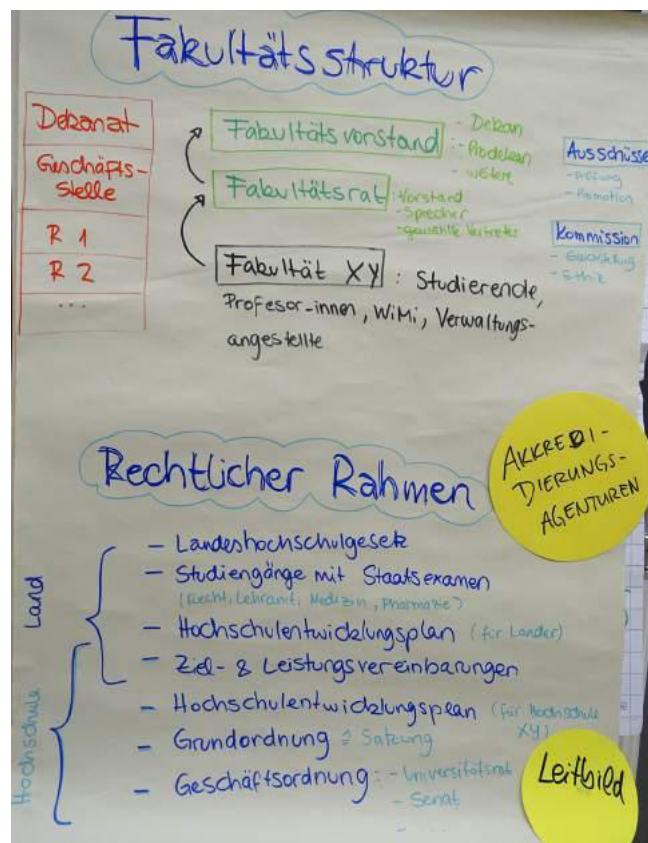 Fakultätsstruktur
Dekanat
Geschäfts-
stelle
R 1
R 2
...
Fakultätsvorstand
- Dekan
- Prodekan
- weitere
Fakultätsrat
: Vorstand
- Sprecher
- gewählte Vertreter
Fakultät XY : Studierende,
Profesor-innen, WiMi, Verwaltungs-
angestellte
Ausschüsse
- Prüfung
- Promotion
Kommission
- Ethik
Rechtlicher Rahmen
AKKREDI-
DIERUNGS-
AGENTUREN
Land
- Landeshochschulgesetz
- Studiengänge mit Staatsexamen
(Recht, Lehramt, Medizin, Pharmazie)
- Hochschulentwicklungsplan (für Länder)
- Ziel- & Leistungsvereinbarungen
Hochschule
- Hochschulentwicklungsplan (für Hochschule
XY)
- Grundordnung ≙ Satzung
- Geschäftsordnung : - Universitätsrat
- Senat
- ...
Leitbild